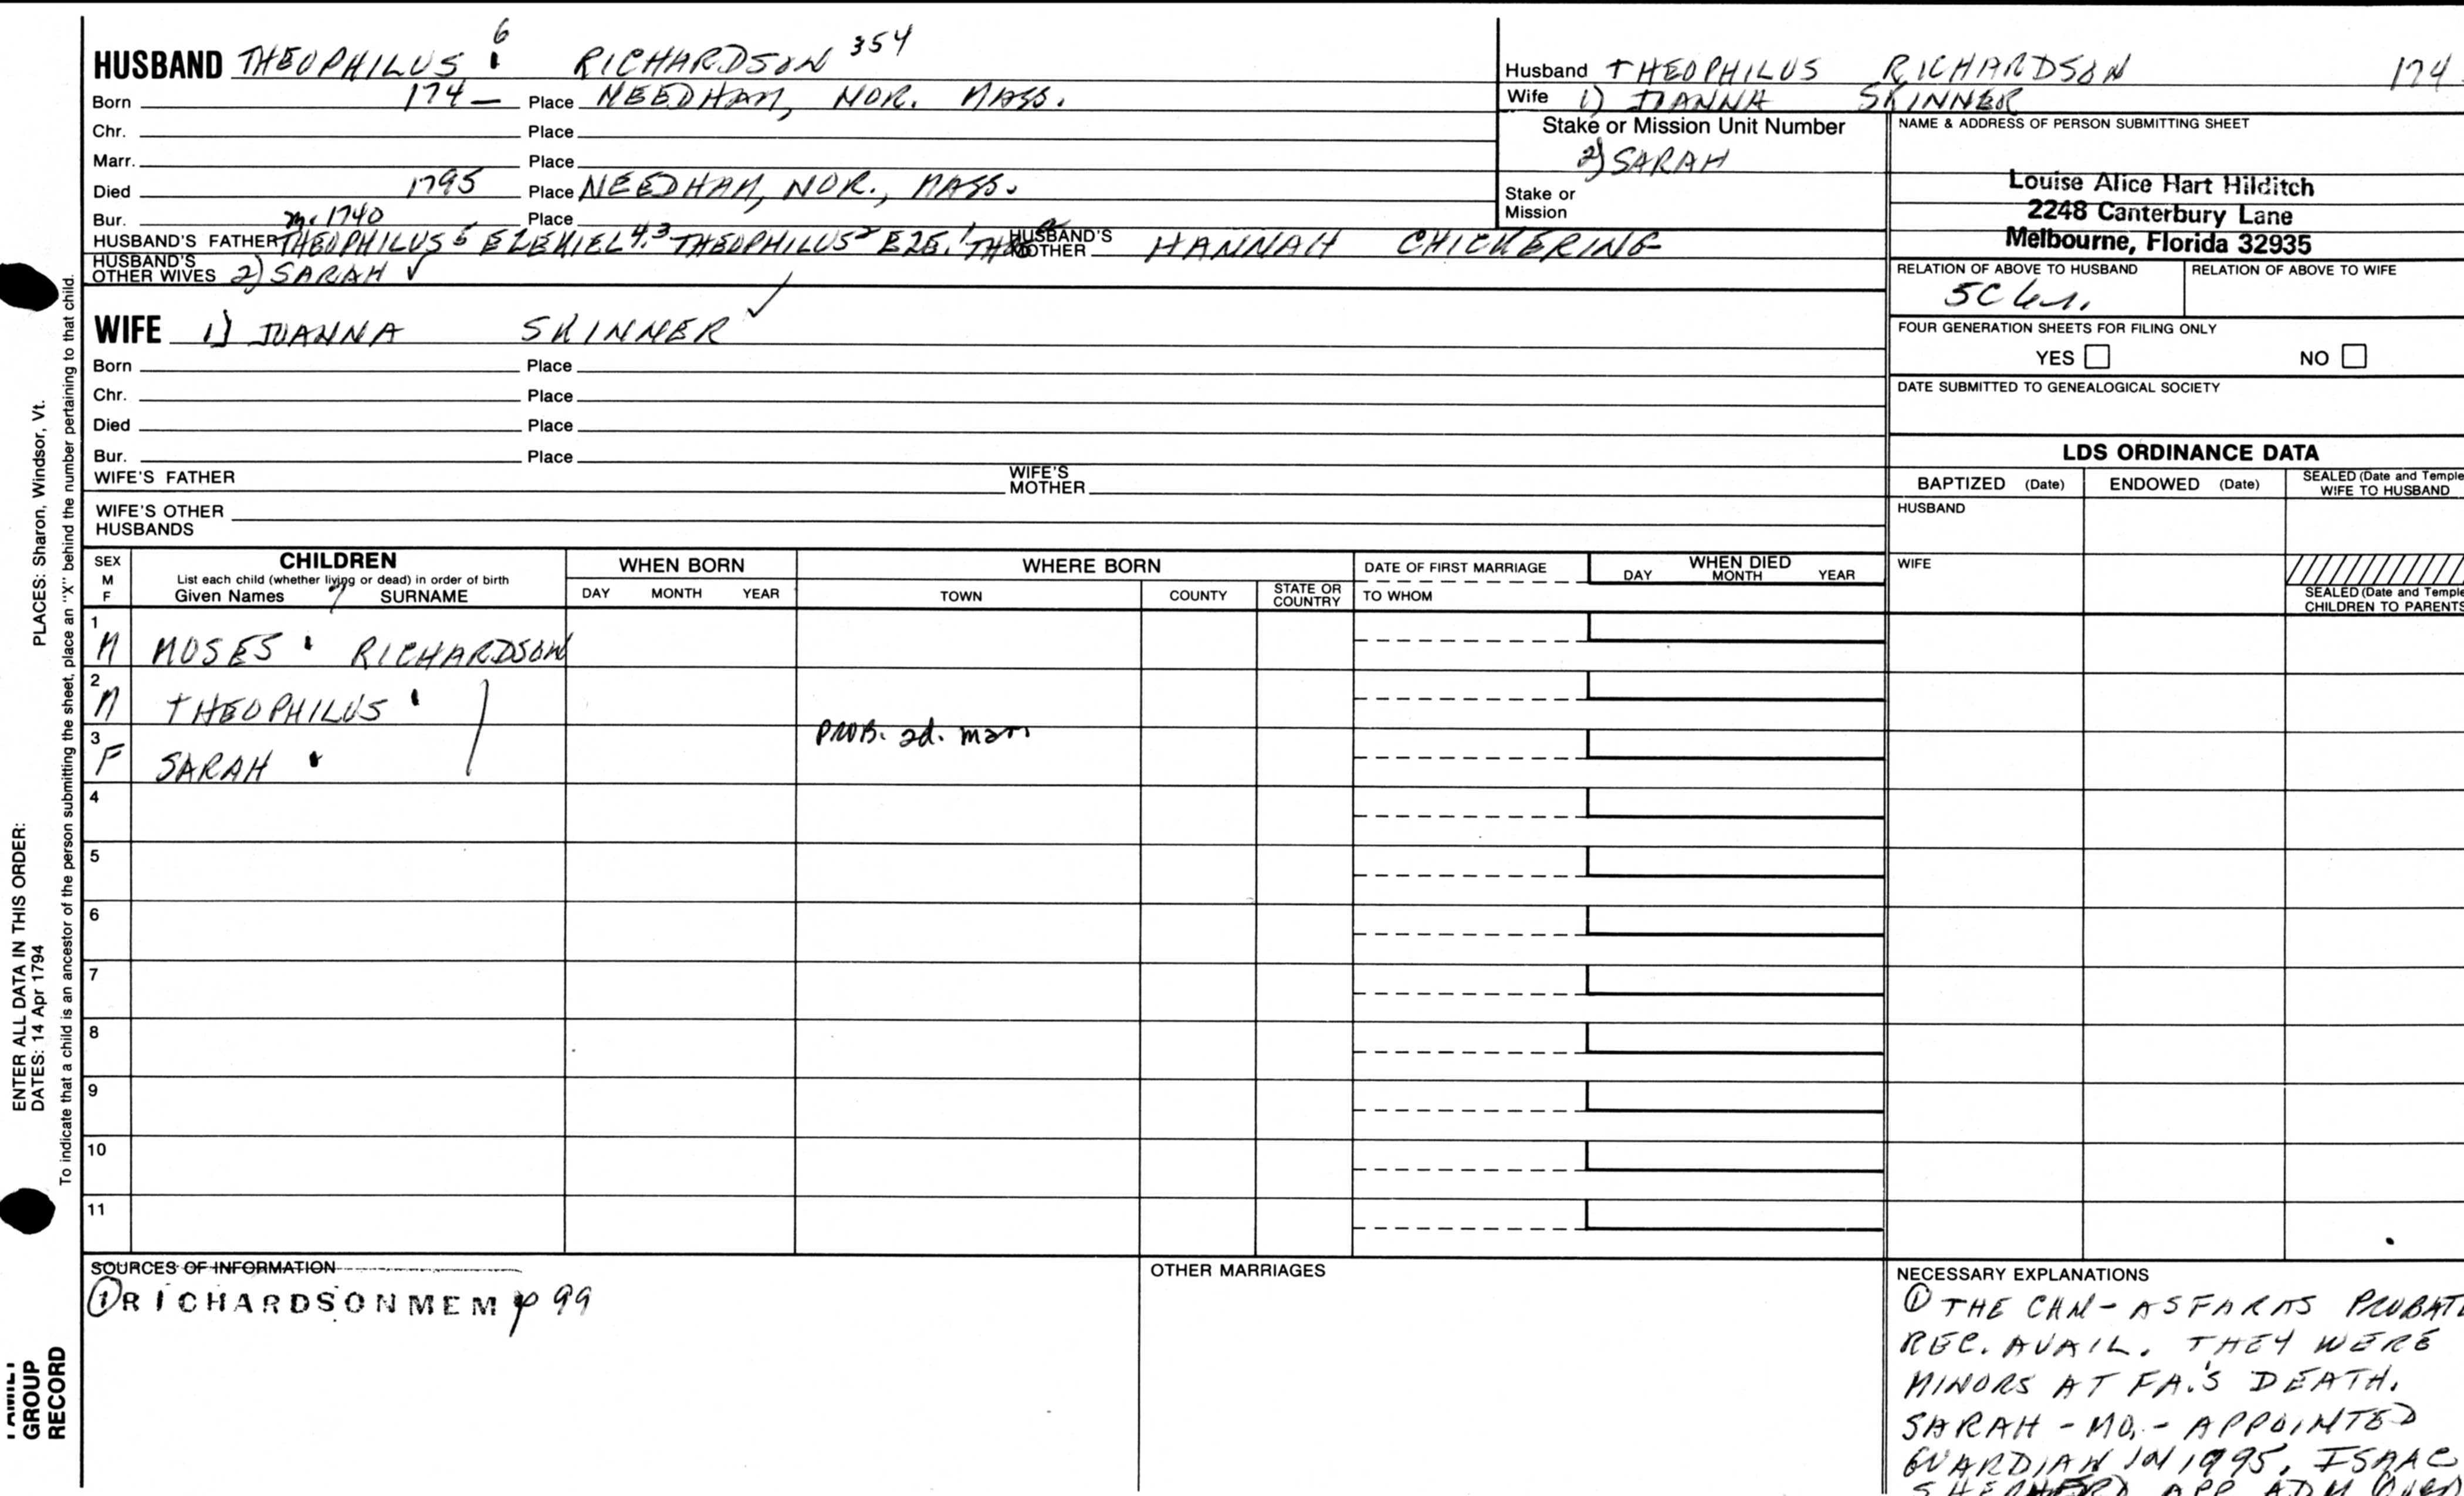 HUSBAND THEOPHILUS 6 RICHARDSON 354
Born 174— Place NEEDHAM, NOR. MASS.
Chr. Place
Marr. Place
Died 1795 Place NEEDHAM, NOR., MASS.
Bur. Place
m. 1740
HUSBAND'S FATHER THEOPHILUS 5 EZEKIEL 4.3 THEOPHILUS 2 EZE. 1 HUSBAND'S MOTHER HANNAH CHICKERING
HUSBAND'S OTHER WIVES 2) SARAH ✓
WIFE 1) JOANNA SKINNER ✓
Born Place
Chr. Place
Died Place
Bur. Place
WIFE'S FATHER WIFE'S MOTHER
WIFE'S OTHER HUSBANDS
Husband THEOPHILUS RICHARDSON 174
Wife 1) JOANNA SKINNER
Stake or Mission Unit Number
2) SARAH
Stake or
Mission
NAME & ADDRESS OF PERSON SUBMITTING SHEET
Louise Alice Hart Hilditch
2248 Canterbury Lane
Melbourne, Florida 32935
RELATION OF ABOVE TO HUSBAND RELATION OF ABOVE TO WIFE
5C
FOUR GENERATION SHEETS FOR FILING ONLY
YES NO
DATE SUBMITTED TO GENEALOGICAL SOCIETY
LDS ORDINANCE DATA
BAPTIZED (Date) ENDOWED (Date) SEALED (Date and Temple
WIFE TO HUSBAND
HUSBAND
WIFE
SEALED (Date and Temple
CHILDREN TO PARENTS
SEX
M
F
CHILDREN
List each child (whether living or dead) in order of birth
Given Names 7 SURNAME
WHEN BORN
DAY MONTH YEAR
WHERE BORN
TOWN COUNTY STATE OR COUNTRY
DATE OF FIRST MARRIAGE
TO WHOM
WHEN DIED
DAY MONTH YEAR
1
M MOSES RICHARDSON
2
M THEOPHILUS
3 PROB. 2d. mar.
F SARAH
4
5
6
7
8
9
10
11
SOURCES OF INFORMATION
① RICHARDSONMEM p 99
OTHER MARRIAGES
NECESSARY EXPLANATIONS
① THE CHN - AS FAR AS PROBATE
REC. AVAIL. THEY WERE
MINORS AT FA.'S DEATH.
SARAH - MO. - APPOINTED
GUARDIAN IN 1795. ISAAC
APP. ADM
ENTER ALL DATA IN THIS ORDER:
DATES: 14 Apr 1794
PLACES: Sharon, Windsor, Vt.
To indicate that a child is an ancestor of the person submitting the sheet, place an "X" behind the number pertaining to that child.
FAMILY
GROUP
RECORD